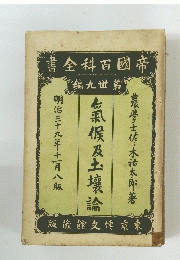 書全科百國帝
編九世第
農學士佐々木祐太郎著
氣候及土壤論
明治三十九年十一月八版
東京博文館藏版